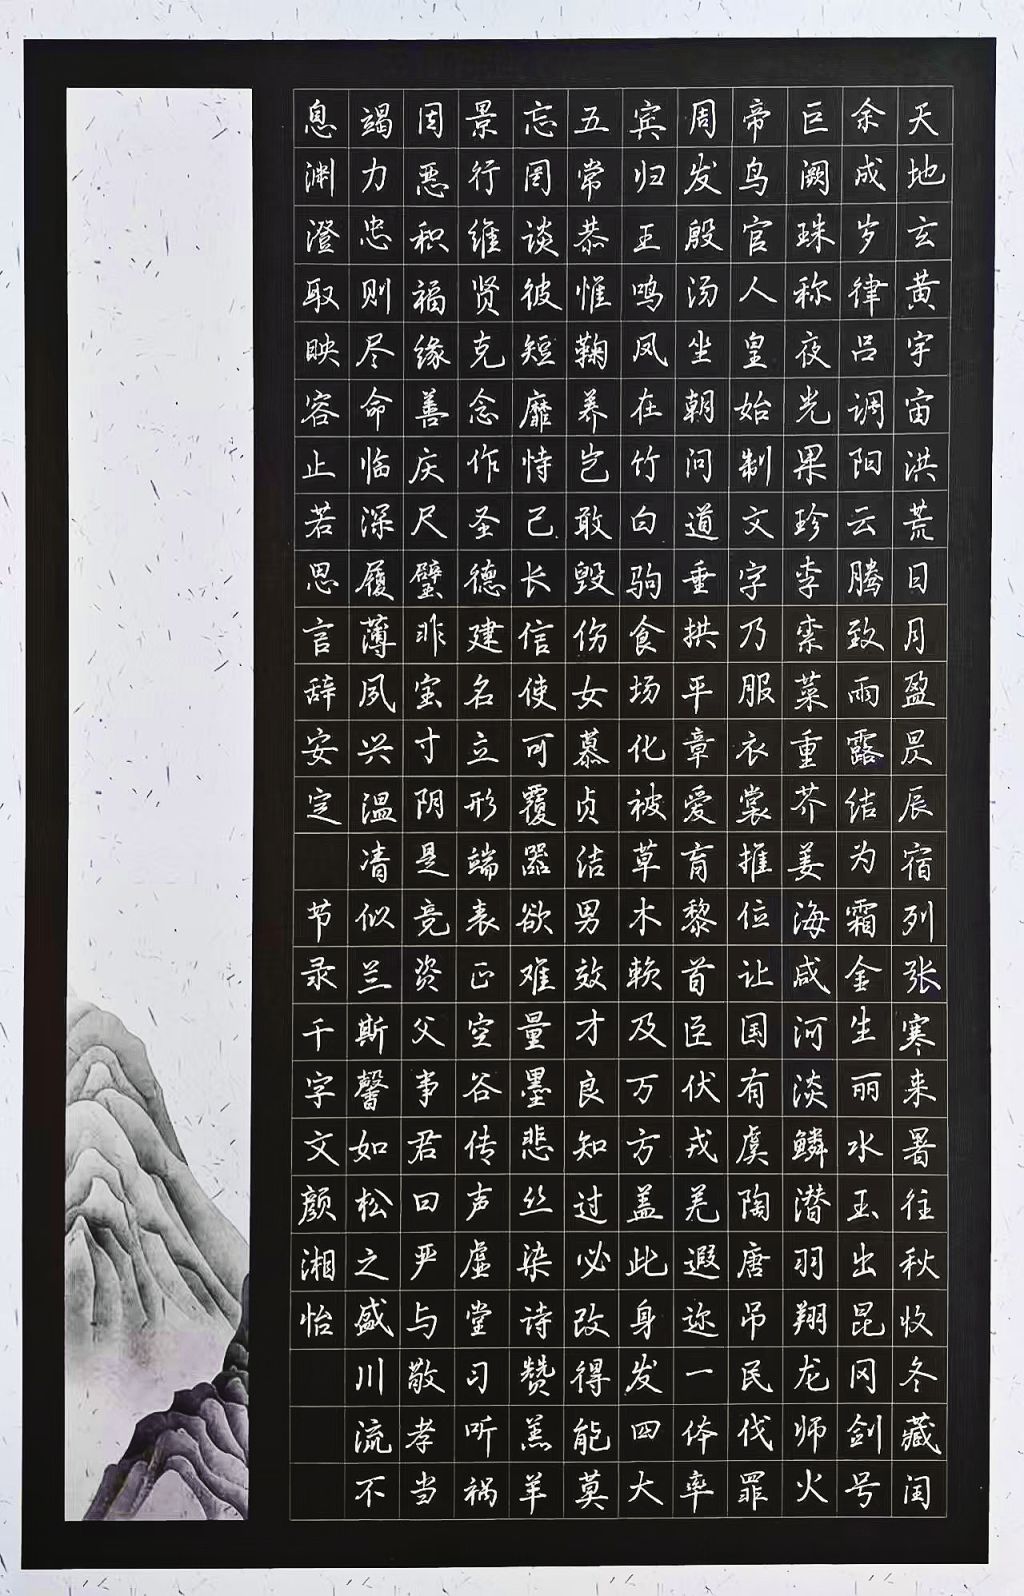 天地玄黄宇宙洪荒日月盈昃辰宿列张寒来暑往秋收冬藏闰
余成岁律吕调阳云腾致雨露结为霜金生丽水玉出昆冈剑号
巨阙珠称夜光果珍李柰菜重芥姜海咸河淡鳞潜羽翔龙师火
帝鸟官人皇始制文字乃服衣裳推位让国有虞陶唐吊民伐罪
周发殷汤坐朝问道垂拱平章爱育黎首臣伏戎羌遐迩一体率
宾归王鸣凤在竹白驹食场化被草木赖及万方盖此身发四大
五常恭惟鞠养岂敢毁伤女慕贞结男效才良知过必改得能莫
忘罔谈彼短靡恃己长信使可覆器欲难量墨悲丝染诗赞羔羊
景行维贤克念作圣德建名立形端表正空谷传声虚堂习听祸
因恶积福缘善庆尺璧非宝寸阴是竞资父事君曰严与敬孝当
竭力忠则尽命临深履薄夙兴温凊似兰斯馨如松之盛川流不
息渊澄取映容止若思言辞安定 节录千字文颜湘怡